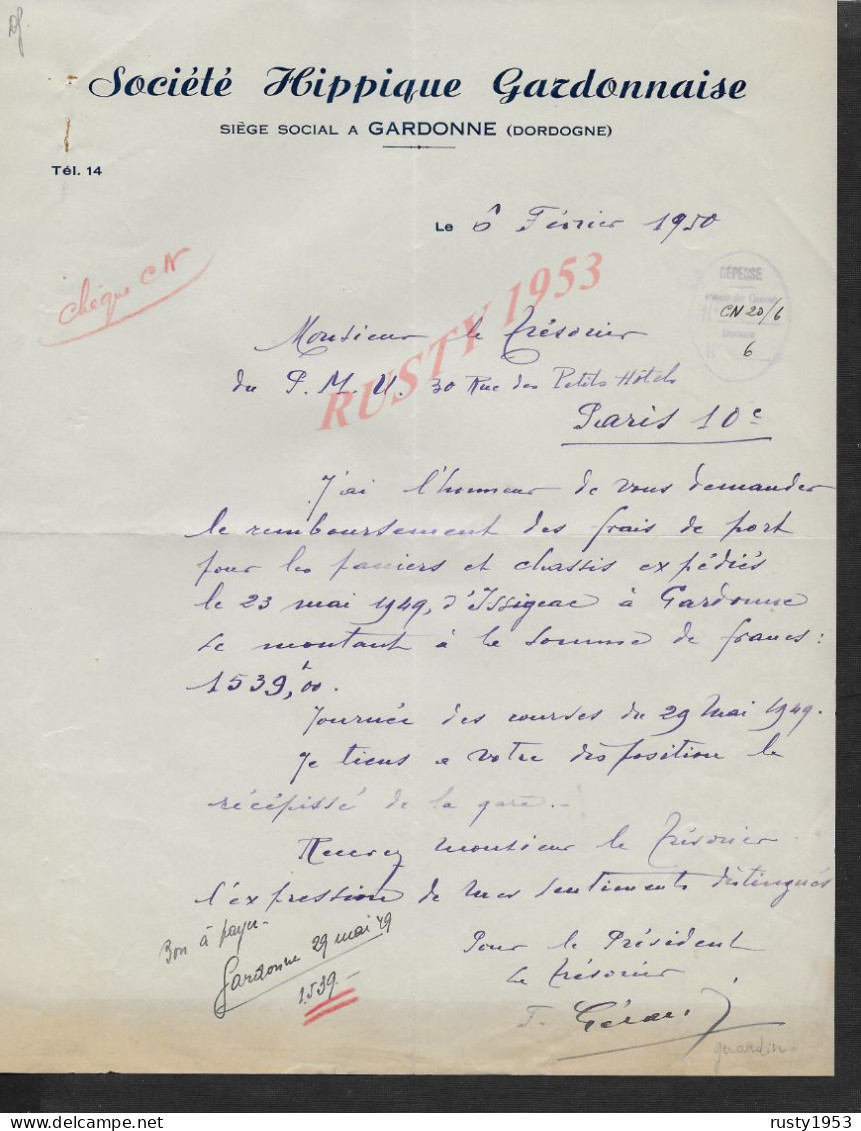 Société Hippique Gardonnaise
SIÈGE SOCIAL A GARDONNE (DORDOGNE)
Tél. 14
Le 6 Février 1950
Chèque CN
DÉPENSE
N° CN 20/6
6
Monsieur le Trésorier
du P.M.U. 30 Rue des Petits Hôtels
Paris 10e
RUSTY 1953
J'ai l'honneur de vous demander
le remboursement des frais de port
pour les paniers et chassis expédiés
le 23 mai 1949, d'Issigeac à Gardonne
se montant à la somme de francs :
1539,00.
Journée des courses du 29 Mai 1949.
Je tiens a votre disposition le
récépissé de la gare.-
Recevez Monsieur le Trésorier
l'expression de mes sentiments distingués
Bon à payer-
Gardonne 29 mai 49
1.539.-
Pour le Président
Le Trésorier
girardin
rusty1953